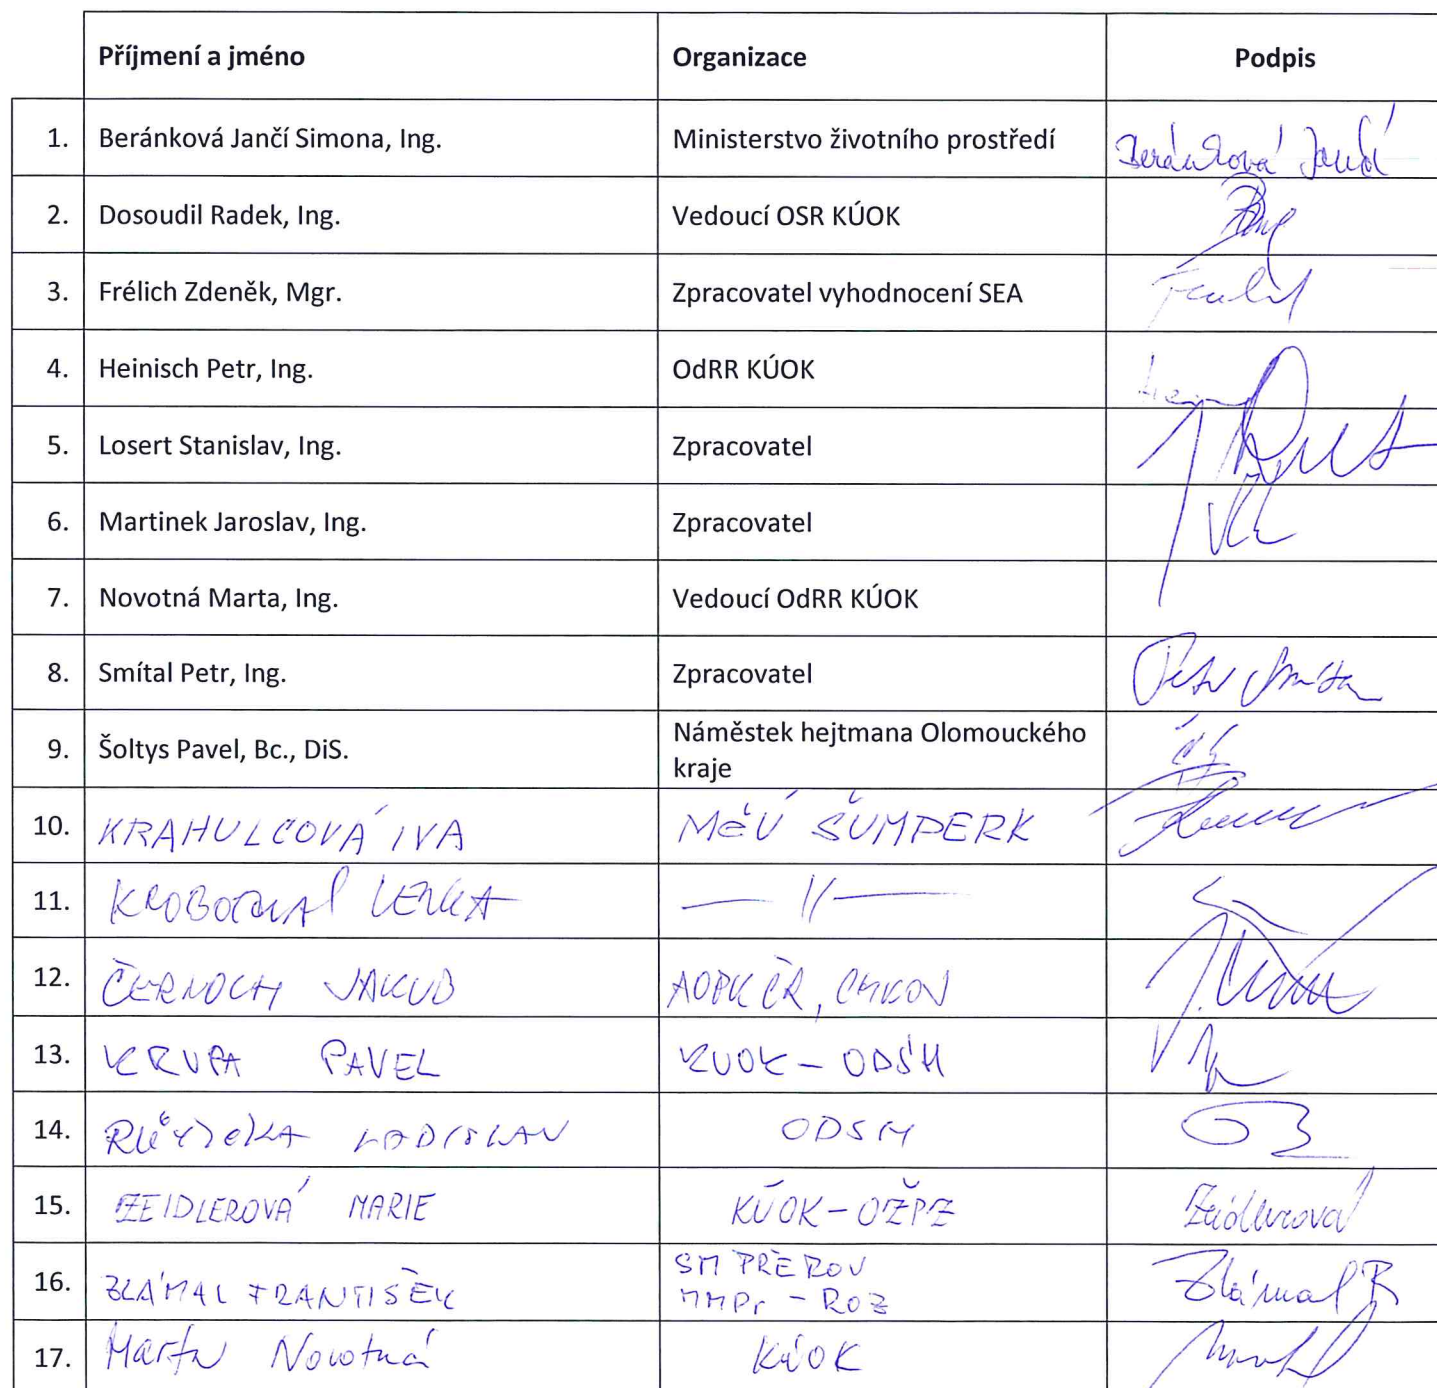 Příjmení a jméno Organizace Podpis
1. Beránková Jančí Simona, Ing. Ministerstvo životního prostředí Beránková Jančí
2. Dosoudil Radek, Ing. Vedoucí OSR KÚOK
3. Frélich Zdeněk, Mgr. Zpracovatel vyhodnocení SEA
4. Heinisch Petr, Ing. OdRR KÚOK
5. Losert Stanislav, Ing. Zpracovatel
6. Martinek Jaroslav, Ing. Zpracovatel
7. Novotná Marta, Ing. Vedoucí OdRR KÚOK
8. Smítal Petr, Ing. Zpracovatel Petr Smítal
9. Šoltys Pavel, Bc., DiS. Náměstek hejtmana Olomouckého
kraje
10. KRAHULCOVÁ IVA MěÚ ŠUMPERK
11. LENKA — 〃 —
12. ČERNOCH JAKUB AOPK ČR,
13. KRUPA PAVEL KUOK - ODSH
14. RŮŽIČKA LADISLAV ODSH
15. ZEIDLEROVÁ MARIE KÚOK - OŽPZ Zeidlerová
16. ZLÁMAL FRANTIŠEK SM PŘEROV Zlámal
MMPr - ROZ
17. Marta Novotná KÚOK